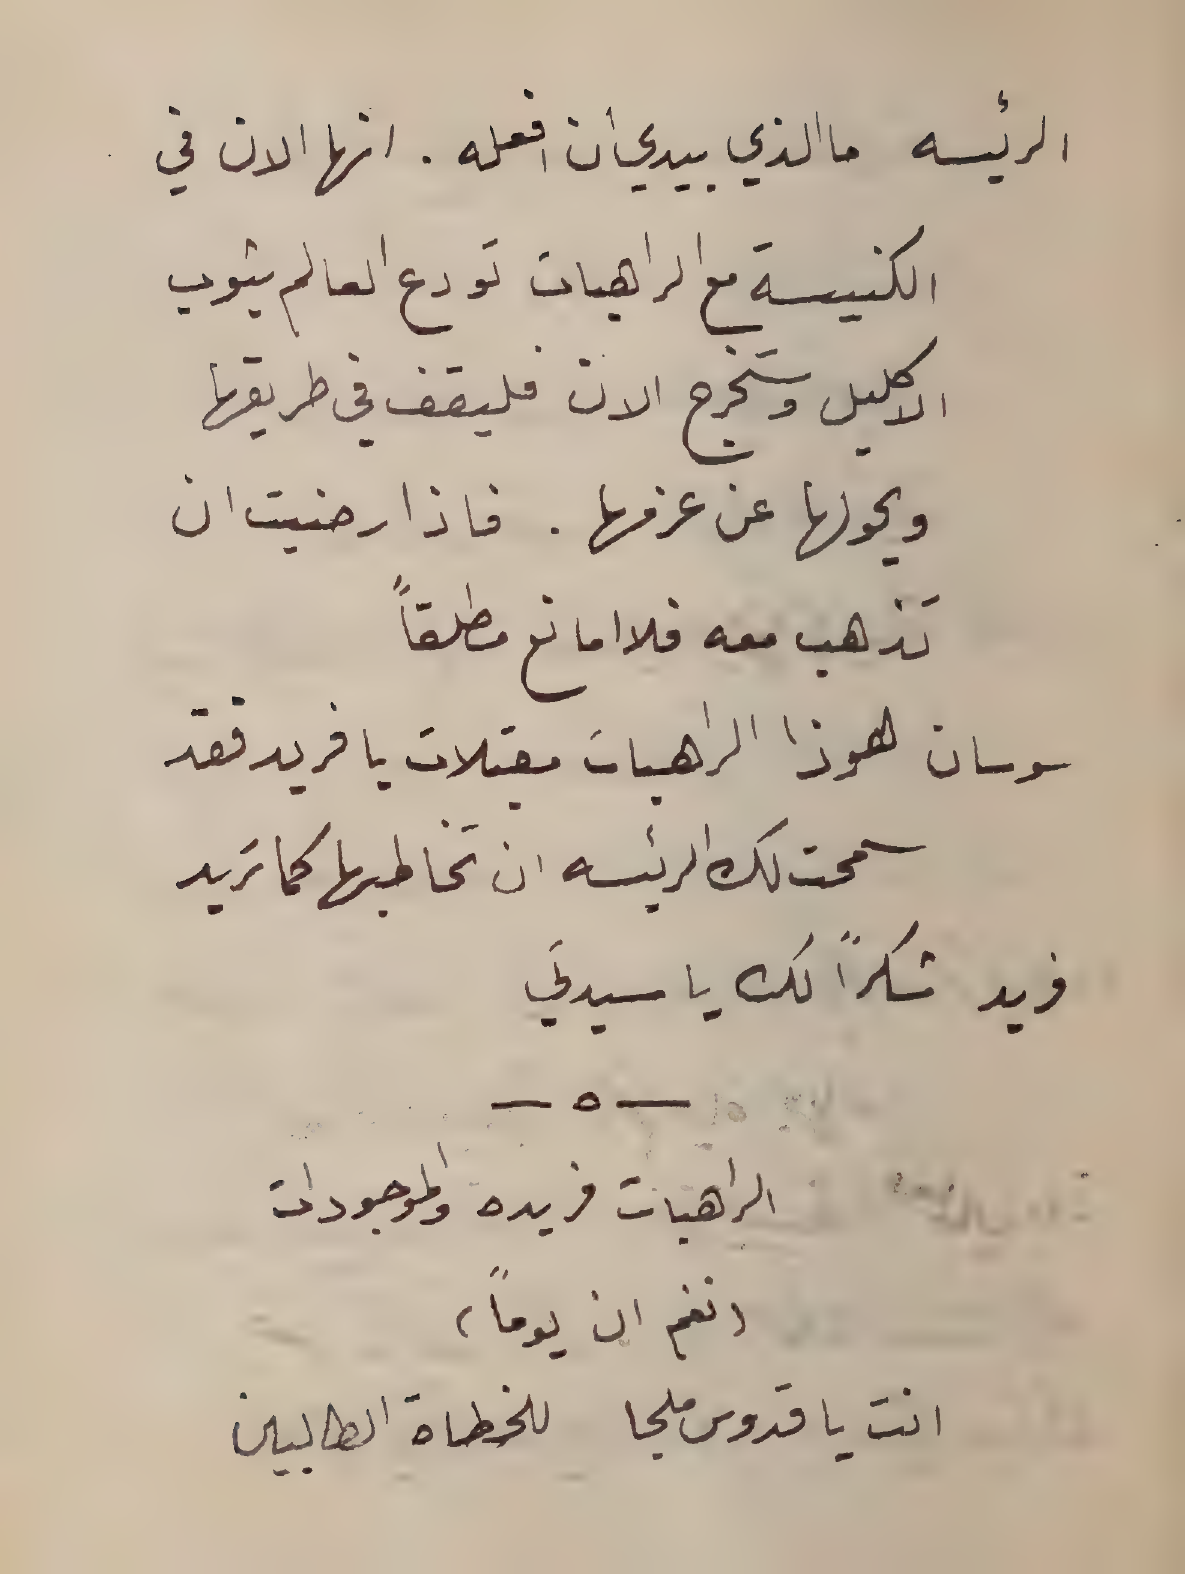 الرئيسه ما الذي بيدي أن افعله . انها الان في
الكنيسة مع الراهبات تودع العالم بثوب
الاكليل وستخرج الان فليقف في طريقها
ويحولها عن عزمها . فاذا رضيت ان
تذهب معه فلا امانع مطلقاً
سوسان هوذا الراهبات مقبلات يا فريد فقد
سمحت لك الرئيسه ان تخاطبها كما تريد
فريد شكراً لك يا سيدتي
— ٥ —
الراهبات فريده والموجودات
(نغم ان يوماً)
انت يا قدوس ملجا للخطاة الطالبين